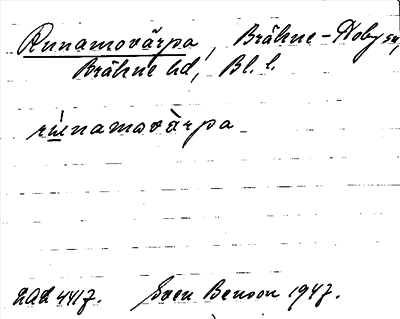 Runamovärpa, Bräkne-Hoby sn,
Bräkne hd, Bl. l.
rúnamovàrpa
LAL 4417. Sven Benson 1947.